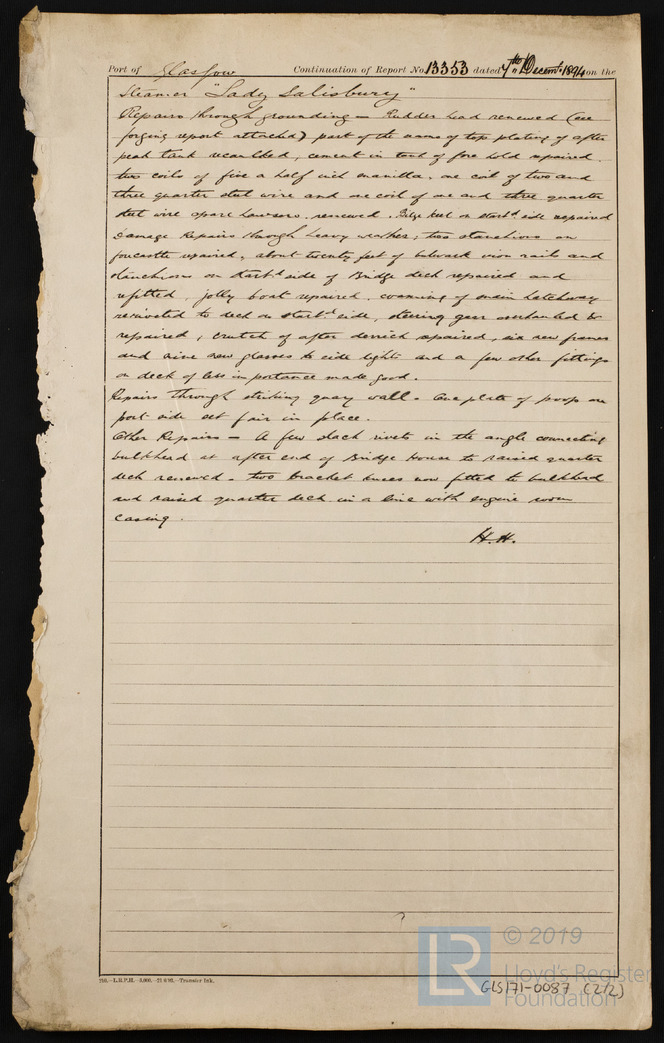 Port of Glasgow Continuation of Report No. 13353 dated 7th Decemr 1894 on the
Steamer "Lady Salisbury"
Repairs through grounding — Rudder head renewed (see
forging report attached) part of the seams of top plating of after
peak tank recaulked, cement in tank of fore hold repaired.
two coils of five a half inch manilla, one coil of two and
three quarter steel wire and one coil of one and three quarter
steel wire spare hawsers, renewed. Bilge keel on starbd side repaired
Damage Repairs through heavy weather; two stanchions on
forecastle repaired, about twenty feet of bulwark iron rails and
stanchions on starbd side of Bridge deck repaired and
refitted, jolly boat repaired, coaming of main hatchway
reriveted to deck on starbd side, steering gear overhauled &
repaired, crutch of after derrick repaired, six new frames
and nine new glasses to side lights and a few other fittings
on deck of less importance made good.
Repairs through striking quay wall - One plate of poop on
port side set fair in place.
Other Repairs — A few slack rivets in the angle connecting
bulkhead at after end of Bridge House to raised quarter
deck renewed - two bracket knees now fitted to bulkhead
and raised quarter deck in a line with engine room
casing.
H.H.
210.—L.R.P.H.
—Transfer Ink.
LR
© 2019
Lloyd's Register
Foundation
GLS171-0087 (2/2)